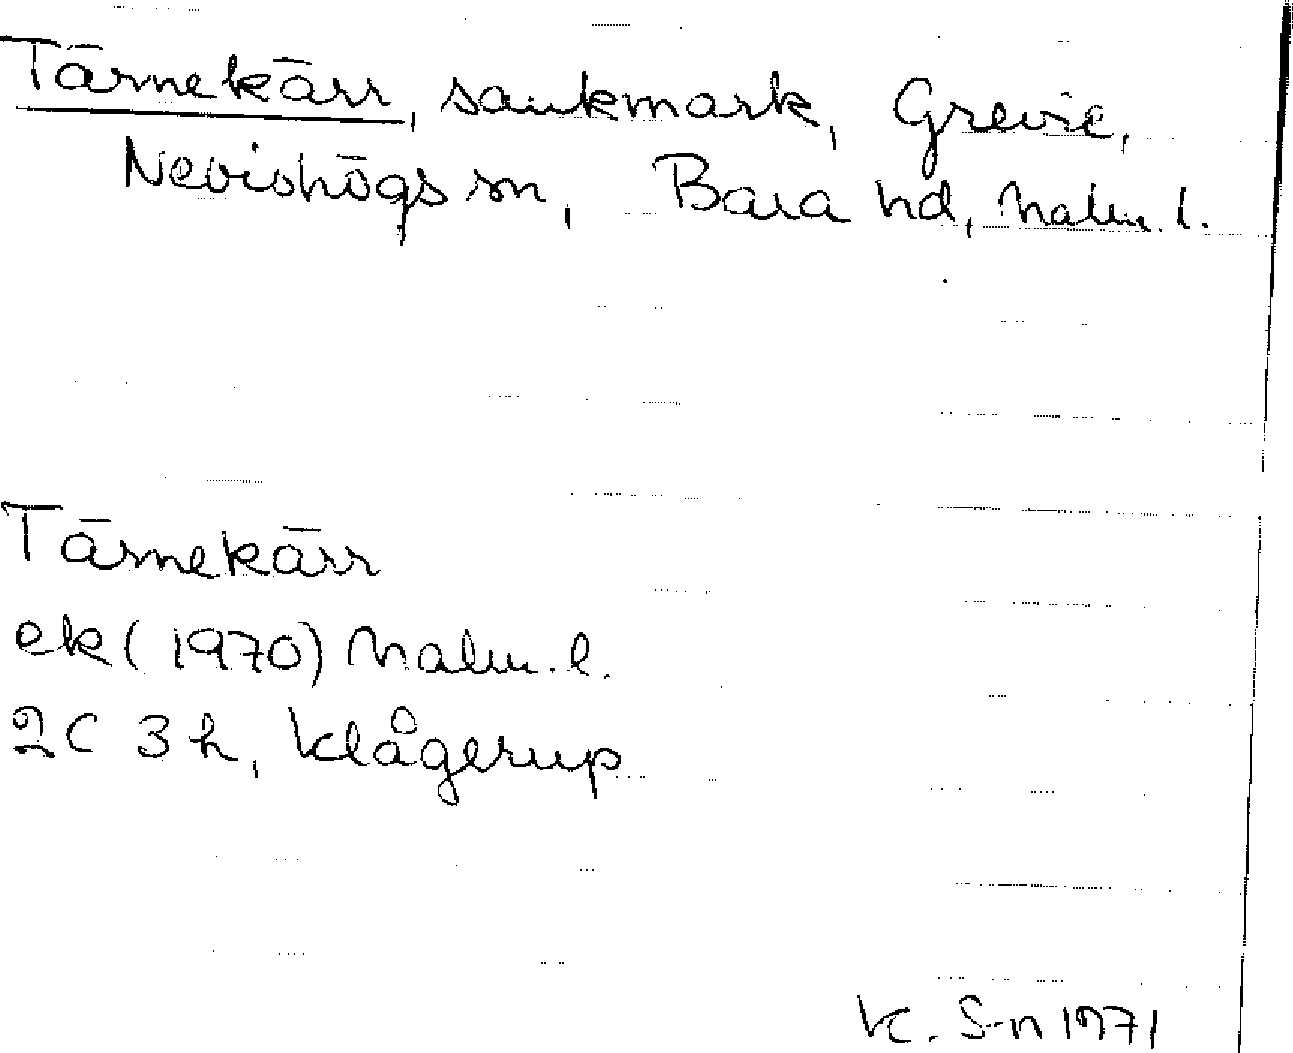 Tärnekärr, sankmark, Grevie,
Nevishögs sn, Bara hd, Malm. l.
Tärnekärr
ek (1970) Malm. l.
2C 3h, Klågerup
K. S-n 1971